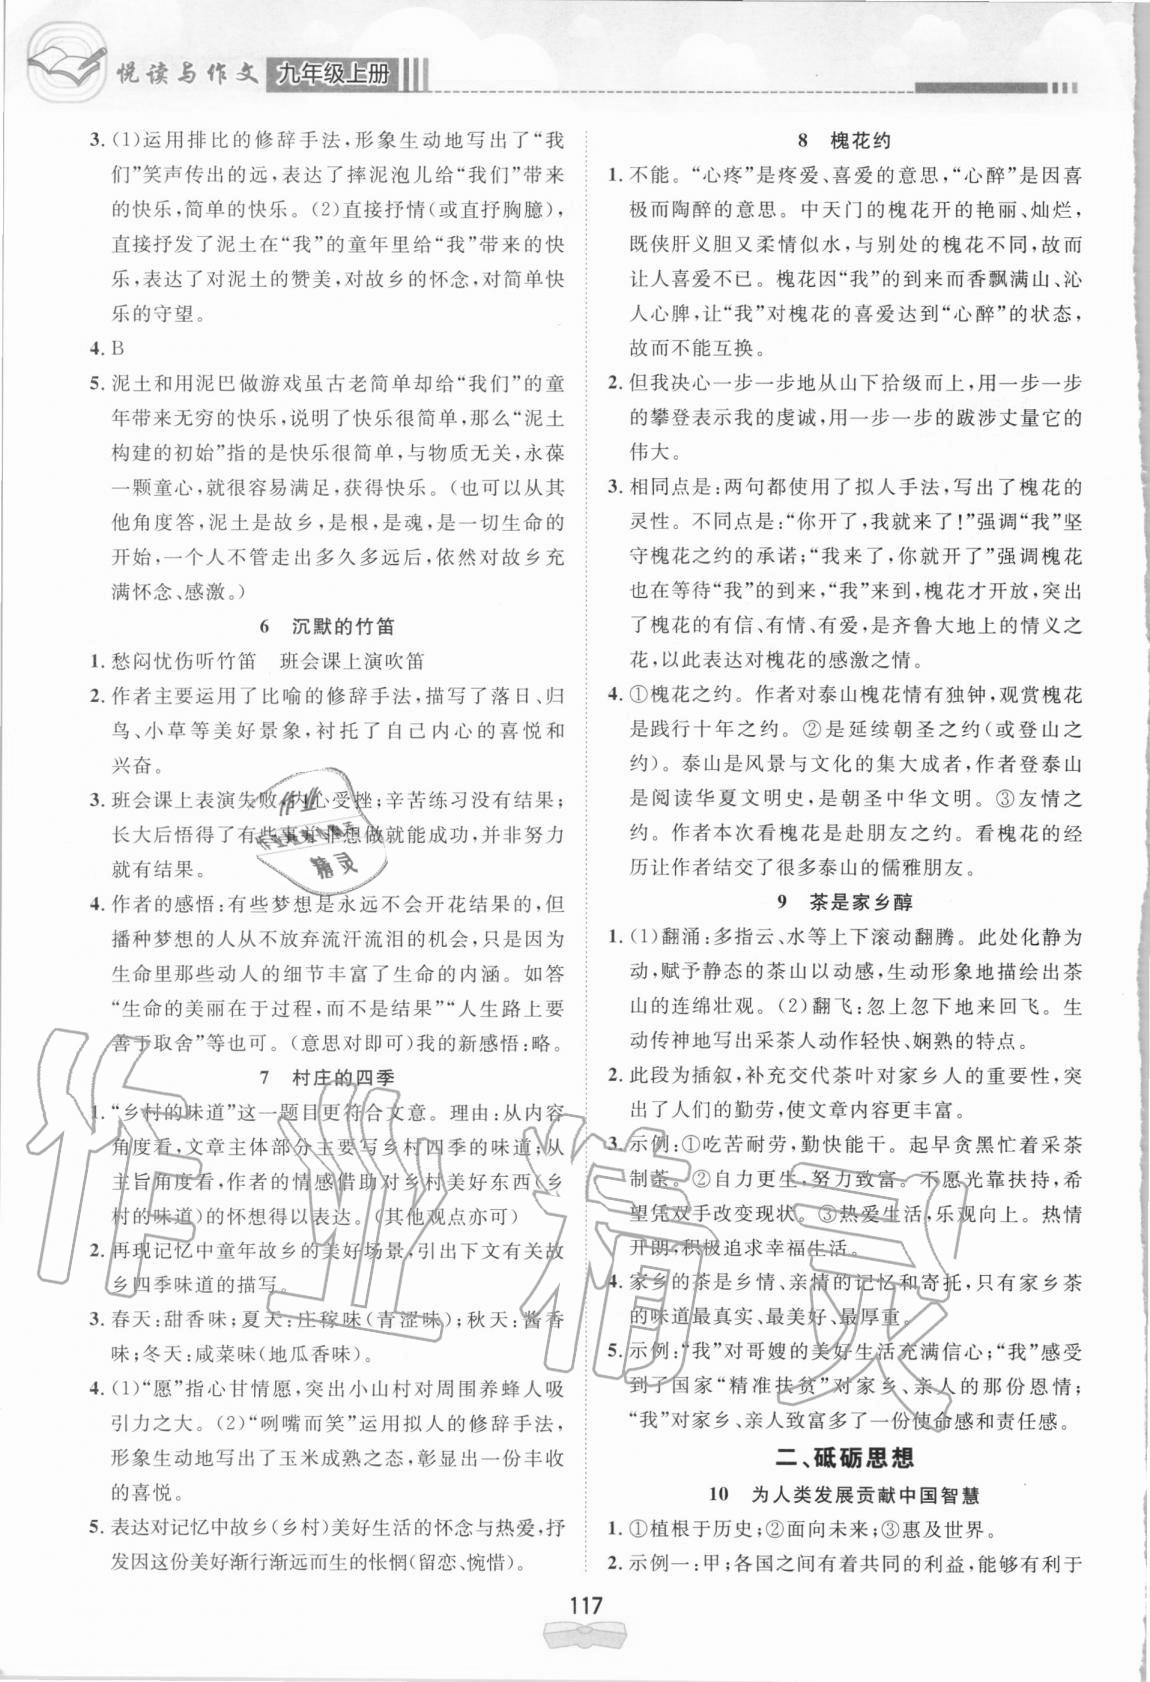 悦读与作文 九年级上册
3. (1)运用排比的修辞手法,形象生动地写出了“我
们”笑声传出的远,表达了摔泥泡儿给“我们”带来
的快乐,简单的快乐。(2)直接抒情(或直抒胸臆),
直接抒发了泥土在“我”的童年里给“我”带来的快
乐,表达了对泥土的赞美,对故乡的怀念,对简单快
乐的守望。
4. B
5. 泥土和用泥巴做游戏虽古老简单却给“我们”的童
年带来无穷的快乐,说明了快乐很简单,那么“泥土
构建的初始”指的是快乐很简单,与物质无关,永葆
一颗童心,就很容易满足,获得快乐。(也可以从其
他角度答,泥土是故乡,是根,是魂,是一切生命的
开始,一个人不管走出多久多远后,依然对故乡充
满怀念、感激。)
6 沉默的竹笛
1. 愁闷忧伤听竹笛 班会课上演吹笛
2. 作者主要运用了比喻的修辞手法,描写了落日、归
鸟、小草等美好景象,衬托了自己内心的喜悦和
兴奋。
3. 班会课上表演失败,内心受挫;辛苦练习没有结果;
长大后悟得了有些事并非想做就能成功,并非努力
就有结果。
4. 作者的感悟:有些梦想是永远不会开花结果的,但
播种梦想的人从不放弃流汗流泪的机会,只是因为
生命里那些动人的细节丰富了生命的内涵。如答
“生命的美丽在于过程,而不是结果”“人生路上要
善于取舍”等也可。(意思对即可)我的新感悟:略。
7 村庄的四季
1. “乡村的味道”这一题目更符合文意。理由:从内容
角度看,文章主体部分主要写乡村四季的味道;从
主旨角度看,作者的情感借助对乡村美好东西(乡
村的味道)的怀想得以表达。(其他观点亦可)
2. 再现记忆中童年故乡的美好场景,引出下文有关故
乡四季味道的描写。
3. 春天:甜香味;夏天:庄稼味(青涩味);秋天:酱香
味;冬天:咸菜味(地瓜香味)。
4. (1)“愿”指心甘情愿,突出小山村对周围养蜂人吸
引力之大。(2)“咧嘴而笑”运用拟人的修辞手法,
形象生动地写出了玉米成熟之态,彰显出一份丰收
的喜悦。
5. 表达对记忆中故乡(乡村)美好生活的怀念与热爱,抒
发因这份美好渐行渐远而生的怅惘(留恋、惋惜)。
8 槐花约
1. 不能。“心疼”是疼爱、喜爱的意思,“心醉”是因喜
极而陶醉的意思。中天门的槐花开的艳丽、灿烂,
既侠肝义胆又柔情似水,与别处的槐花不同,故而
让人喜爱不已。槐花因“我”的到来而香飘满山、沁
人心脾,让“我”对槐花的喜爱达到“心醉”的状态,
故而不能互换。
2. 但我决心一步一步地从山下拾级而上,用一步一步
的攀登表示我的虔诚,用一步一步的跋涉丈量它的
伟大。
3. 相同点是:两句都使用了拟人手法,写出了槐花的
灵性。不同点是:“你开了,我就来了!”强调“我”坚
守槐花之约的承诺;“我来了,你就开了”强调槐花
也在等待“我”的到来,“我”来到,槐花才开放,突出
了槐花的有信、有情、有爱,是齐鲁大地上的情义之
花,以此表达对槐花的感激之情。
4. ①槐花之约。作者对泰山槐花情有独钟,观赏槐花
是践行十年之约。②是延续朝圣之约(或登山之
约)。泰山是风景与文化的集大成者,作者登泰山
是阅读华夏文明史,是朝圣中华文明。③友情之
约。作者本次看槐花是赴朋友之约。看槐花的经
历让作者结交了很多泰山的儒雅朋友。
9 茶是家乡醇
1. (1)翻涌:多指云、水等上下滚动翻腾。此处化静为
动,赋予静态的茶山以动感,生动形象地描绘出茶
山的连绵壮观。(2)翻飞:忽上忽下地来回飞。生
动传神地写出采茶人动作轻快、娴熟的特点。
2. 此段为插叙,补充交代茶叶对家乡人的重要性,突
出了人们的勤劳,使文章内容更丰富。
3. 示例:①吃苦耐劳,勤快能干。起早贪黑忙着采茶
制茶。②自力更生,努力致富。不愿光靠扶持,希
望凭双手改变现状。③热爱生活,乐观向上。热情
开朗,积极追求幸福生活。
4. 家乡的茶是乡情、亲情的记忆和寄托,只有家乡茶
的味道最真实、最美好、最厚重。
5. 示例:“我”对哥嫂的美好生活充满信心;“我”感受
到了国家“精准扶贫”对家乡、亲人的那份恩情;
“我”对家乡、亲人致富多了一份使命感和责任感。
二、砥砺思想
10 为人类发展贡献中国智慧
1. ①植根于历史;②面向未来;③惠及世界。
2. 示例一:甲;各国之间有着共同的利益,能够有利于
117
作业精灵